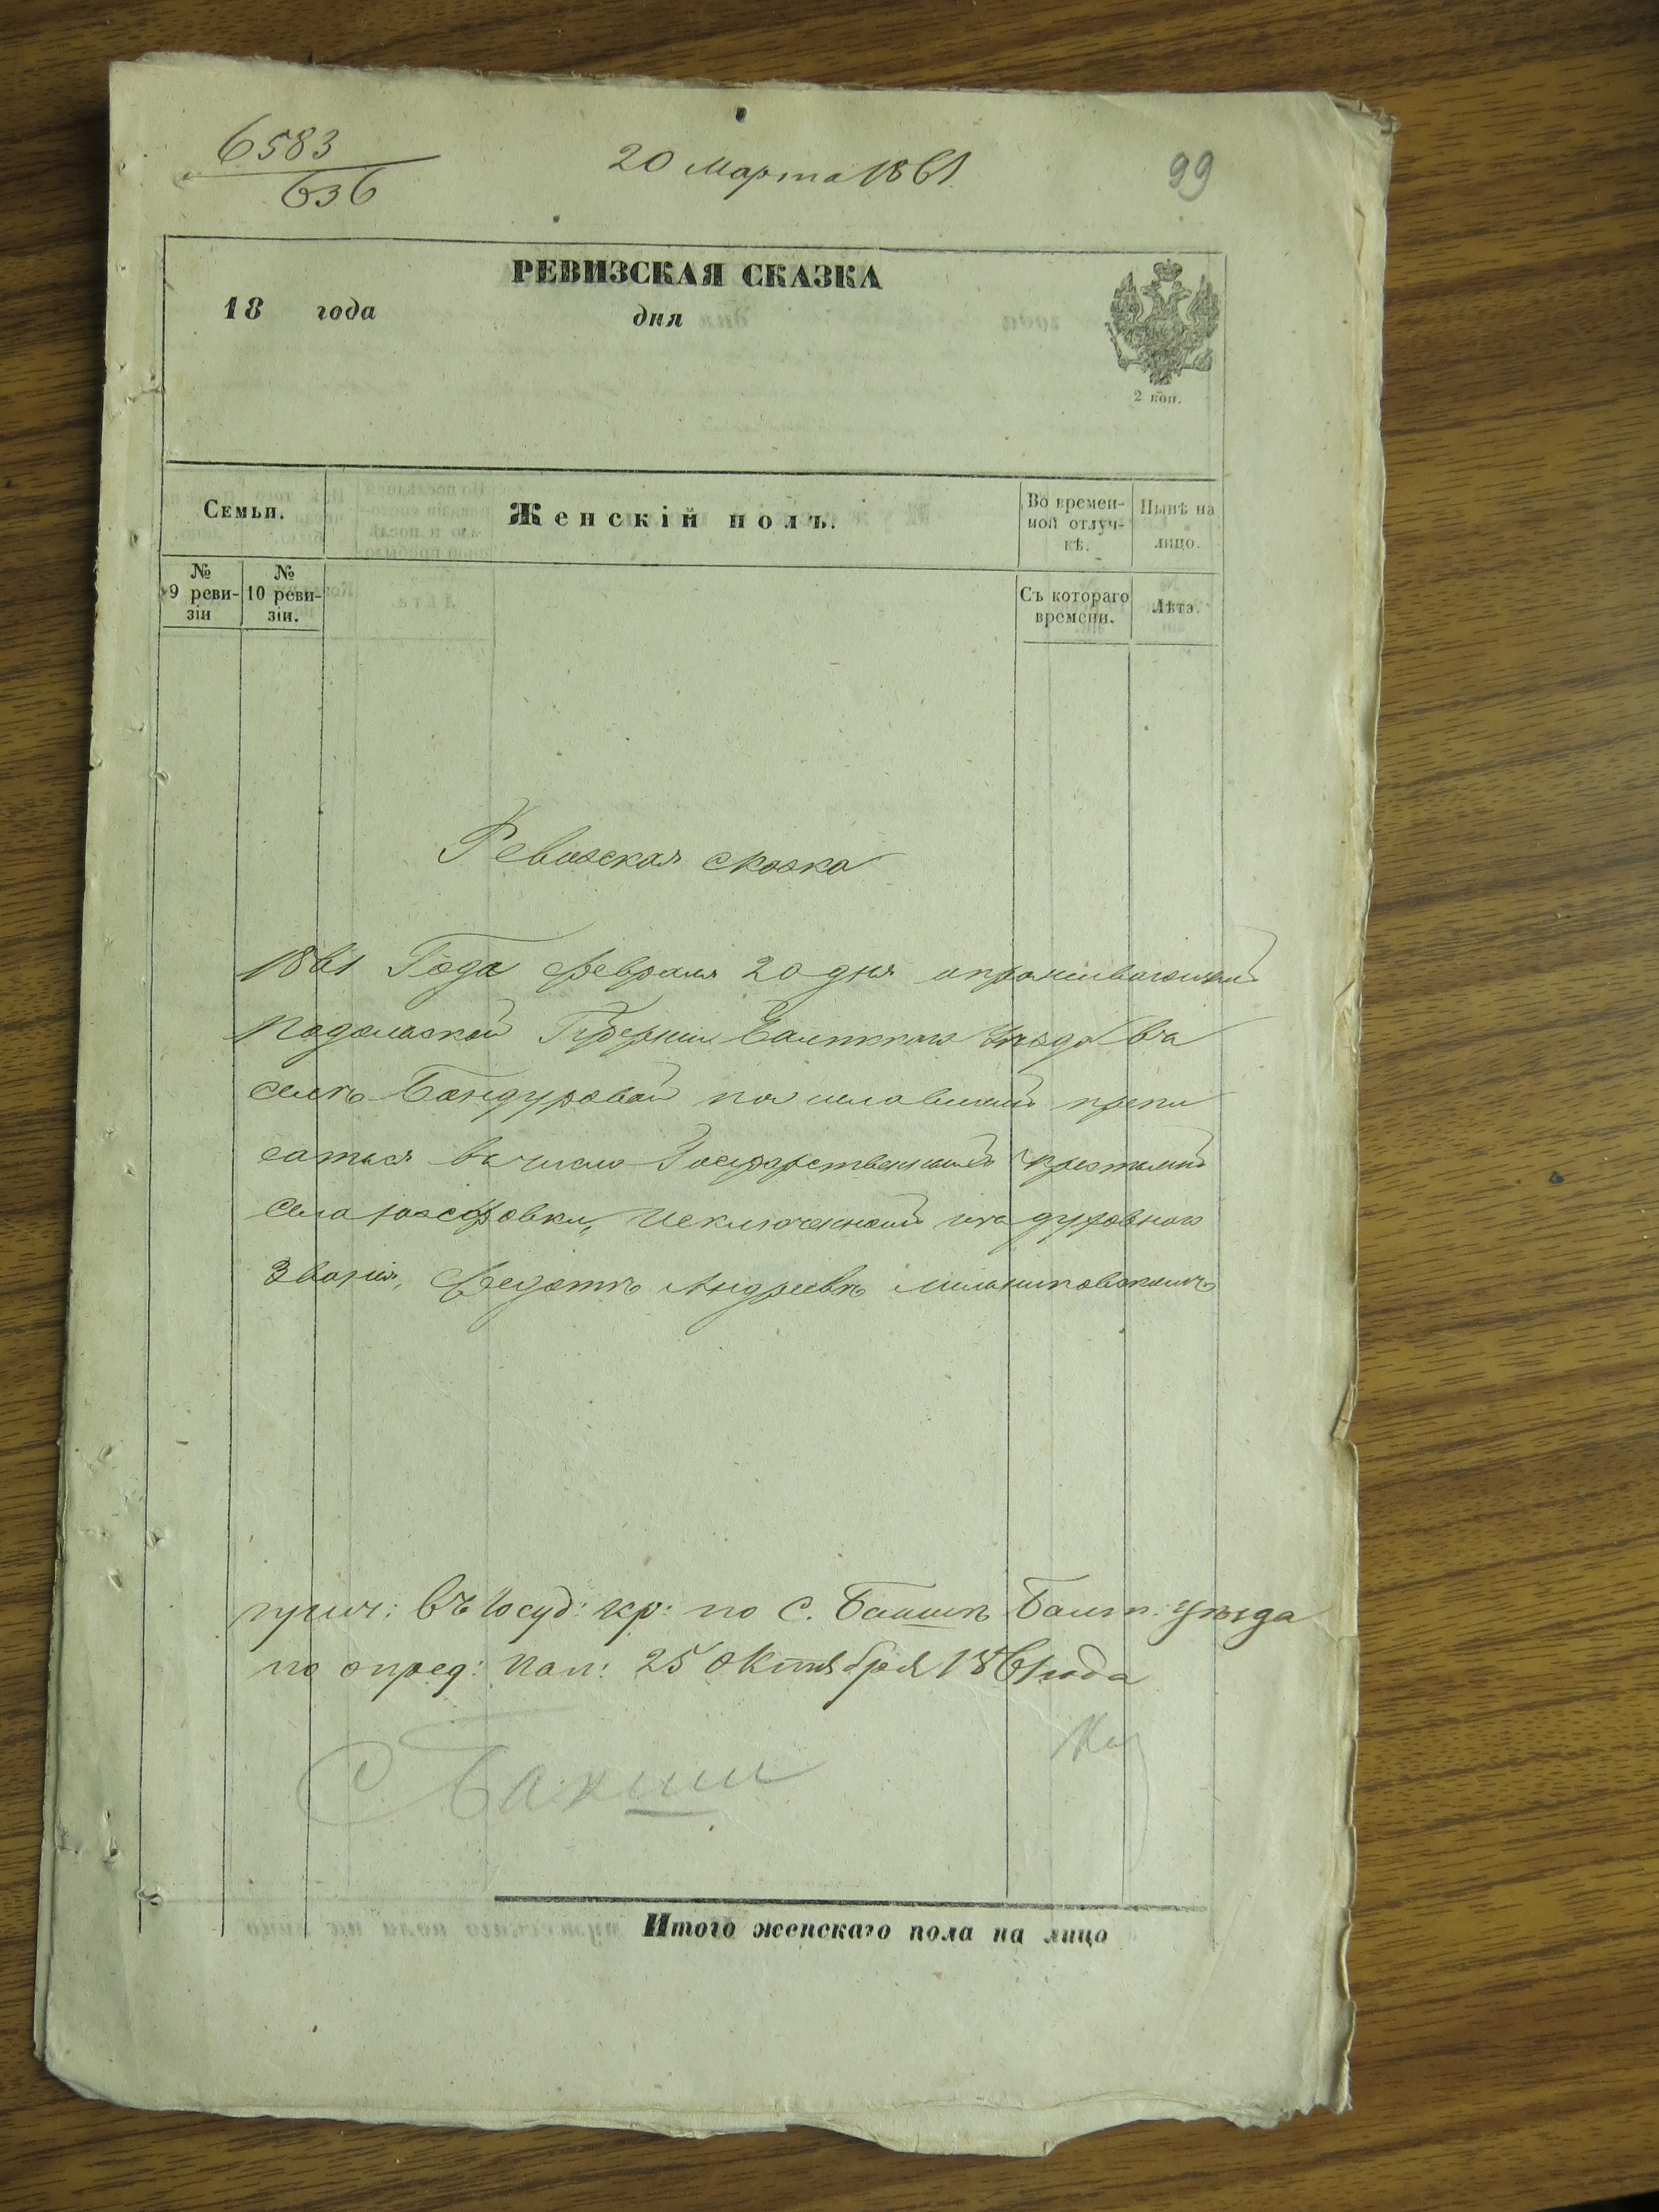 6583
636
20 Марта 1861.
99
РЕВИЗСКАЯ СКАЗКА
18 года дня
2 коп.
Семьи.
Женскій полъ.
Во времен-
ной отлуч-
кѣ.
Нынѣ на
лицо.
№
9 реви-
зіи
№
10 реви-
зіи.
Съ котораго
времени.
Лѣта.
Ревизская сказка
1861 Года Февраля 20 дня о проживающемъ
Подольской Губерніи Балтскаго Уѣзда въ
селѣ Бандуровой пожелавшемъ припи
саться въ число Государственныхъ крестьянъ
села Юзефовки, Исключенномъ изъ духовнаго
Званія, Федотѣ Андреевѣ
прич: въ Госуд: кр: по с. Бакшѣ Балт: уѣзда
по опред: Пал: 25 Октября 1861 года
С Бакши
Итого женскаго пола на лицо